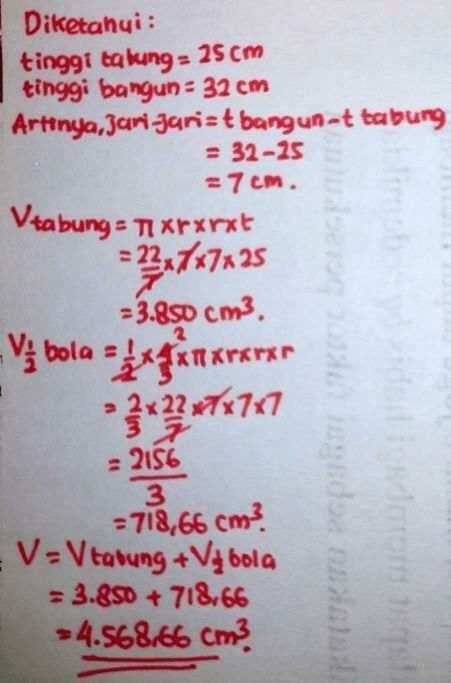 Diketahui:
tinggi tabung = 25 cm
tinggi bangun = 32 cm
Artinya, jari-jari = t bangun - t tabung
= 32 - 25
= 7 cm.
V tabung = π x r x r x t
= 22/7 x 7 x 7 x 25
= 3.850 cm³.
V½ bola = 1/2 x 4/3 x π x r x r x r 2
= 2/3 x 22/7 x 7 x 7 x 7
= 2156/3
= 718,66 cm³.
V = V tabung + V½ bola
= 3.850 + 718,66
= 4.568,66 cm³.